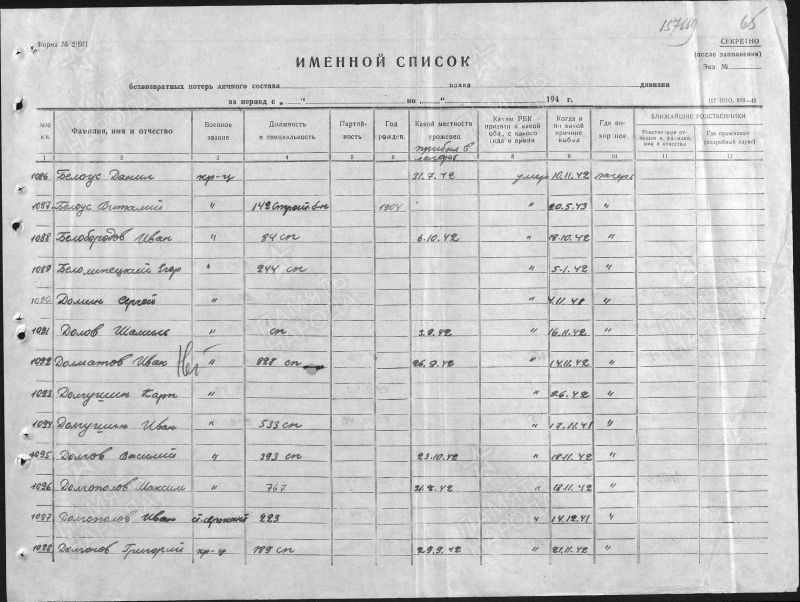 157669 65
Форма № 2/БП
СЕКРЕТНО
(после заполнения)
Экз. №
ИМЕННОЙ СПИСОК
безвозвратных потерь личного состава полка дивизии
за период с „ “ по „ “ 194 г.
№№ п/п Фамилия, имя и отчество Военное звание Должность и специальность Партийность Год рожден. Какой местности уроженец Каким РВК призван и какой обл., с какого года в армии Когда и по какой причине выбыл Где похоронен БЛИЖАЙШИЕ РОДСТВЕННИКИ
прибыл в лагерь
Где проживают (подробный адрес)
1 2 3 4 5 6 7 8 9 10 11 12
1086 Белоус Данил кр-ц 31.7.42 умер 10.11.42 лагерь
1087 Белоус Виталий " 142 1904 " 20.5.43 "
1088 Белобородов Иван " 84 сп 6.10.42 " 18.10.42 "
1089 Белолипецкий Егор " 244 сп " 5.1.42 "
1090 Домин Сергей " " "
1091 Долов Шамиль " сп 3.9.42 " 16.11.42 "
1092 Долматов Иван Нет " 828 сп 26.9.42 " 14.11.42 "
1093 Долгушин Карп " " "
1094 Долгушин Иван " 533 сп " 17.11.41 "
1095 Долгов Василий " 393 сп 23.10.42 " 18.11.42 "
1096 Долгополов Максим " 767 " 18.11.42 "
1097 Долгополов Иван 223 " 14.12.41 "
1098 Григорий кр-ц 189 сп 29.9.42 " 21.11.42 "
ПАМЯТЬ НАРОДА